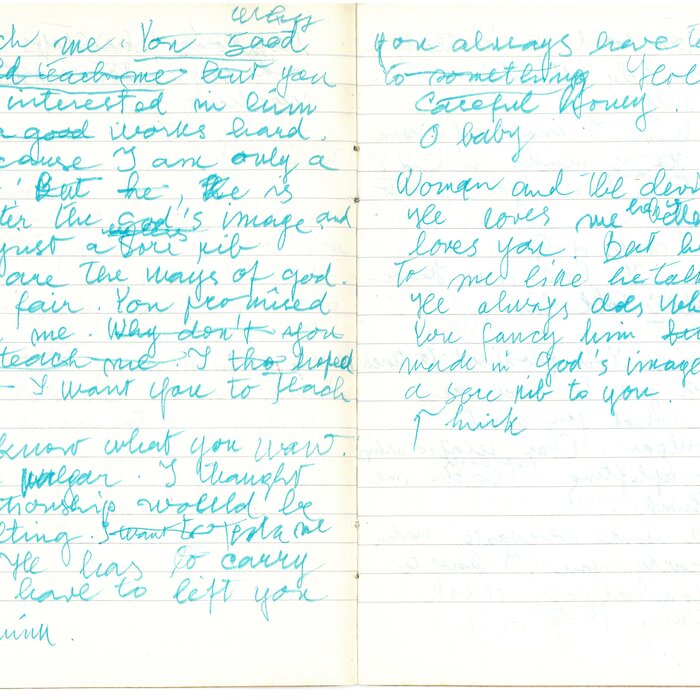 ch me. You said
but you
interested in him
works hard.
cause I am only a
But he, He is
ter the god's image and
just a sore rib
are the ways of god.
fair. You promised
me. Why don't you
teach me. I tho hoped
I want you to teach
know what you want.
vulgar. I thought
tionship would be
lting. I want to
He has to carry
have to lift you
hink.
you always have to
to something
Careful Honey.
O baby
Woman and the devi
He loves me
loves you. But he
to me like he talk
He always does wha
You fancy him
made in god's image
a sore rib to you.
I think